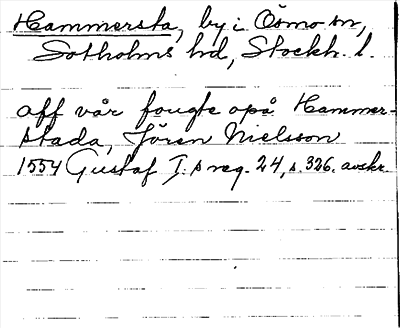 Hammersta, by i Ösmo sn,
Sotholms hd, Stockh. l.
aff vår fougte opå Hammer-
stada, Jören Nielsson
1554 Gustaf I:s reg. 24, s. 326. avskr.